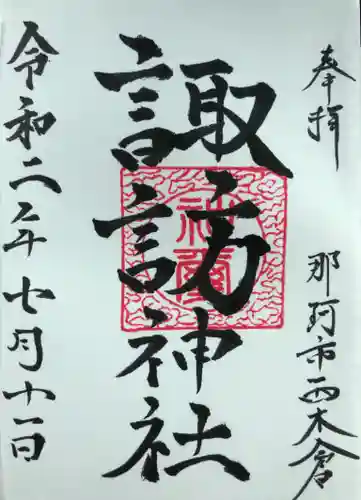 奉拝
那珂市西木倉
諏訪神社
令和二年七月十一日